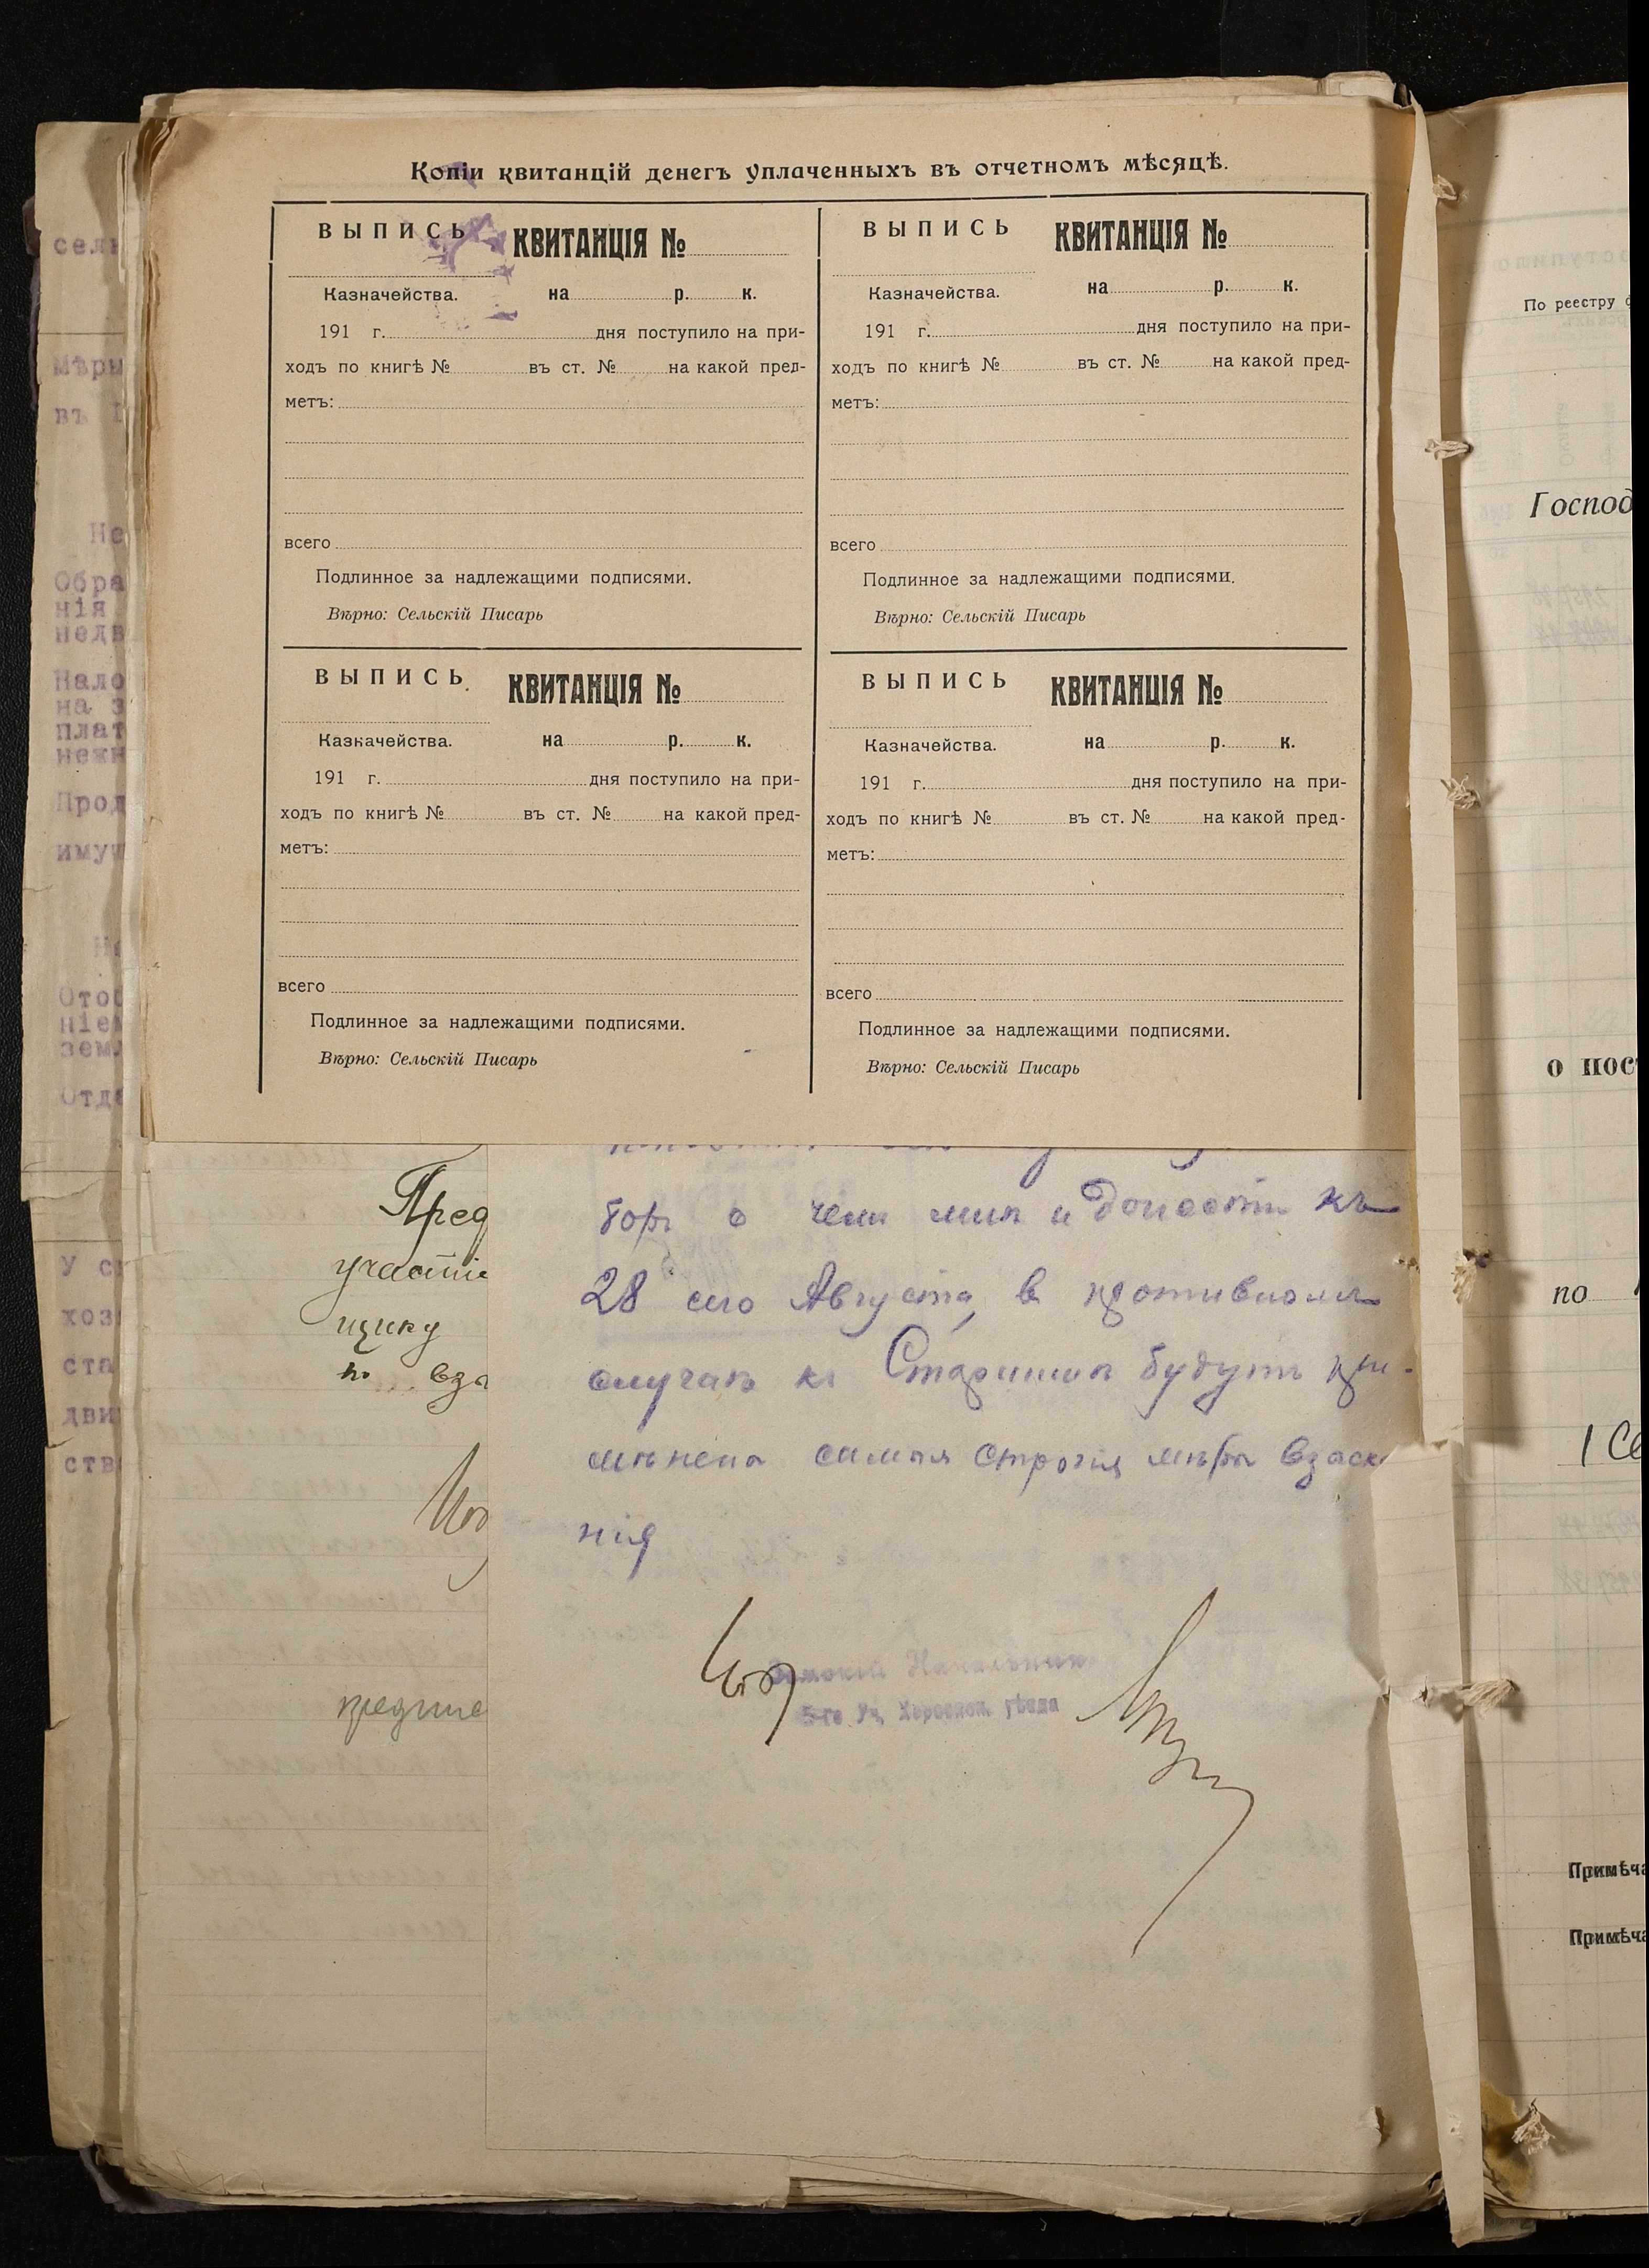 Копіи квитанцій денегъ уплаченныхъ въ отчетномъ мѣсяцѣ.
ВЫПИСЬ КВИТАНЦІЯ №
Казначейства. на р. к.
191 г. дня поступило на при-
ходъ по книгѣ № въ ст. № на какой пред-
метъ:
всего
Подлинное за надлежащими подписями.
Вѣрно: Сельскій Писарь
ВЫПИСЬ КВИТАНЦІЯ №
Казначейства. на р. к.
191 г. дня поступило на при-
ходъ по книгѣ № въ ст. № на какой пред-
метъ:
всего
Подлинное за надлежащими подписями.
Вѣрно: Сельскій Писарь
ВЫПИСЬ КВИТАНЦІЯ №
Казкачейства. на р. к.
191 г. дня поступило на при-
ходъ по книгѣ № въ ст. № на какой пред-
метъ:
всего
Подлинное за надлежащими подписями.
Вѣрно: Сельскій Писарь
ВЫПИСЬ КВИТАНЦІЯ №
Казначейства. на р. к.
191 г. дня поступило на при-
ходъ по книгѣ № въ ст. № на какой пред-
метъ:
всего
Подлинное за надлежащими подписями.
Вѣрно: Сельскій Писарь
боръ о чемъ мнѣ и донести къ
28 сего Августа, в противномъ
случаѣ къ Старшинѣ будутъ при-
мѣнена самая строгія мѣры взаск
нія
Земскій Начальник
5-го Уч. Херсонск. уѣзда
Пред
участіе
щику
по вза
сель
Мѣры
въ
Не
Обра
нія
недв
Нало
на з
плат
нежн
Прод
имущ
Отоб
ніем
зем
Отда
У с
хоз
ста
дви
ств
По реестру
Господ
о пос
по
1 Се
Примѣча
Примѣча